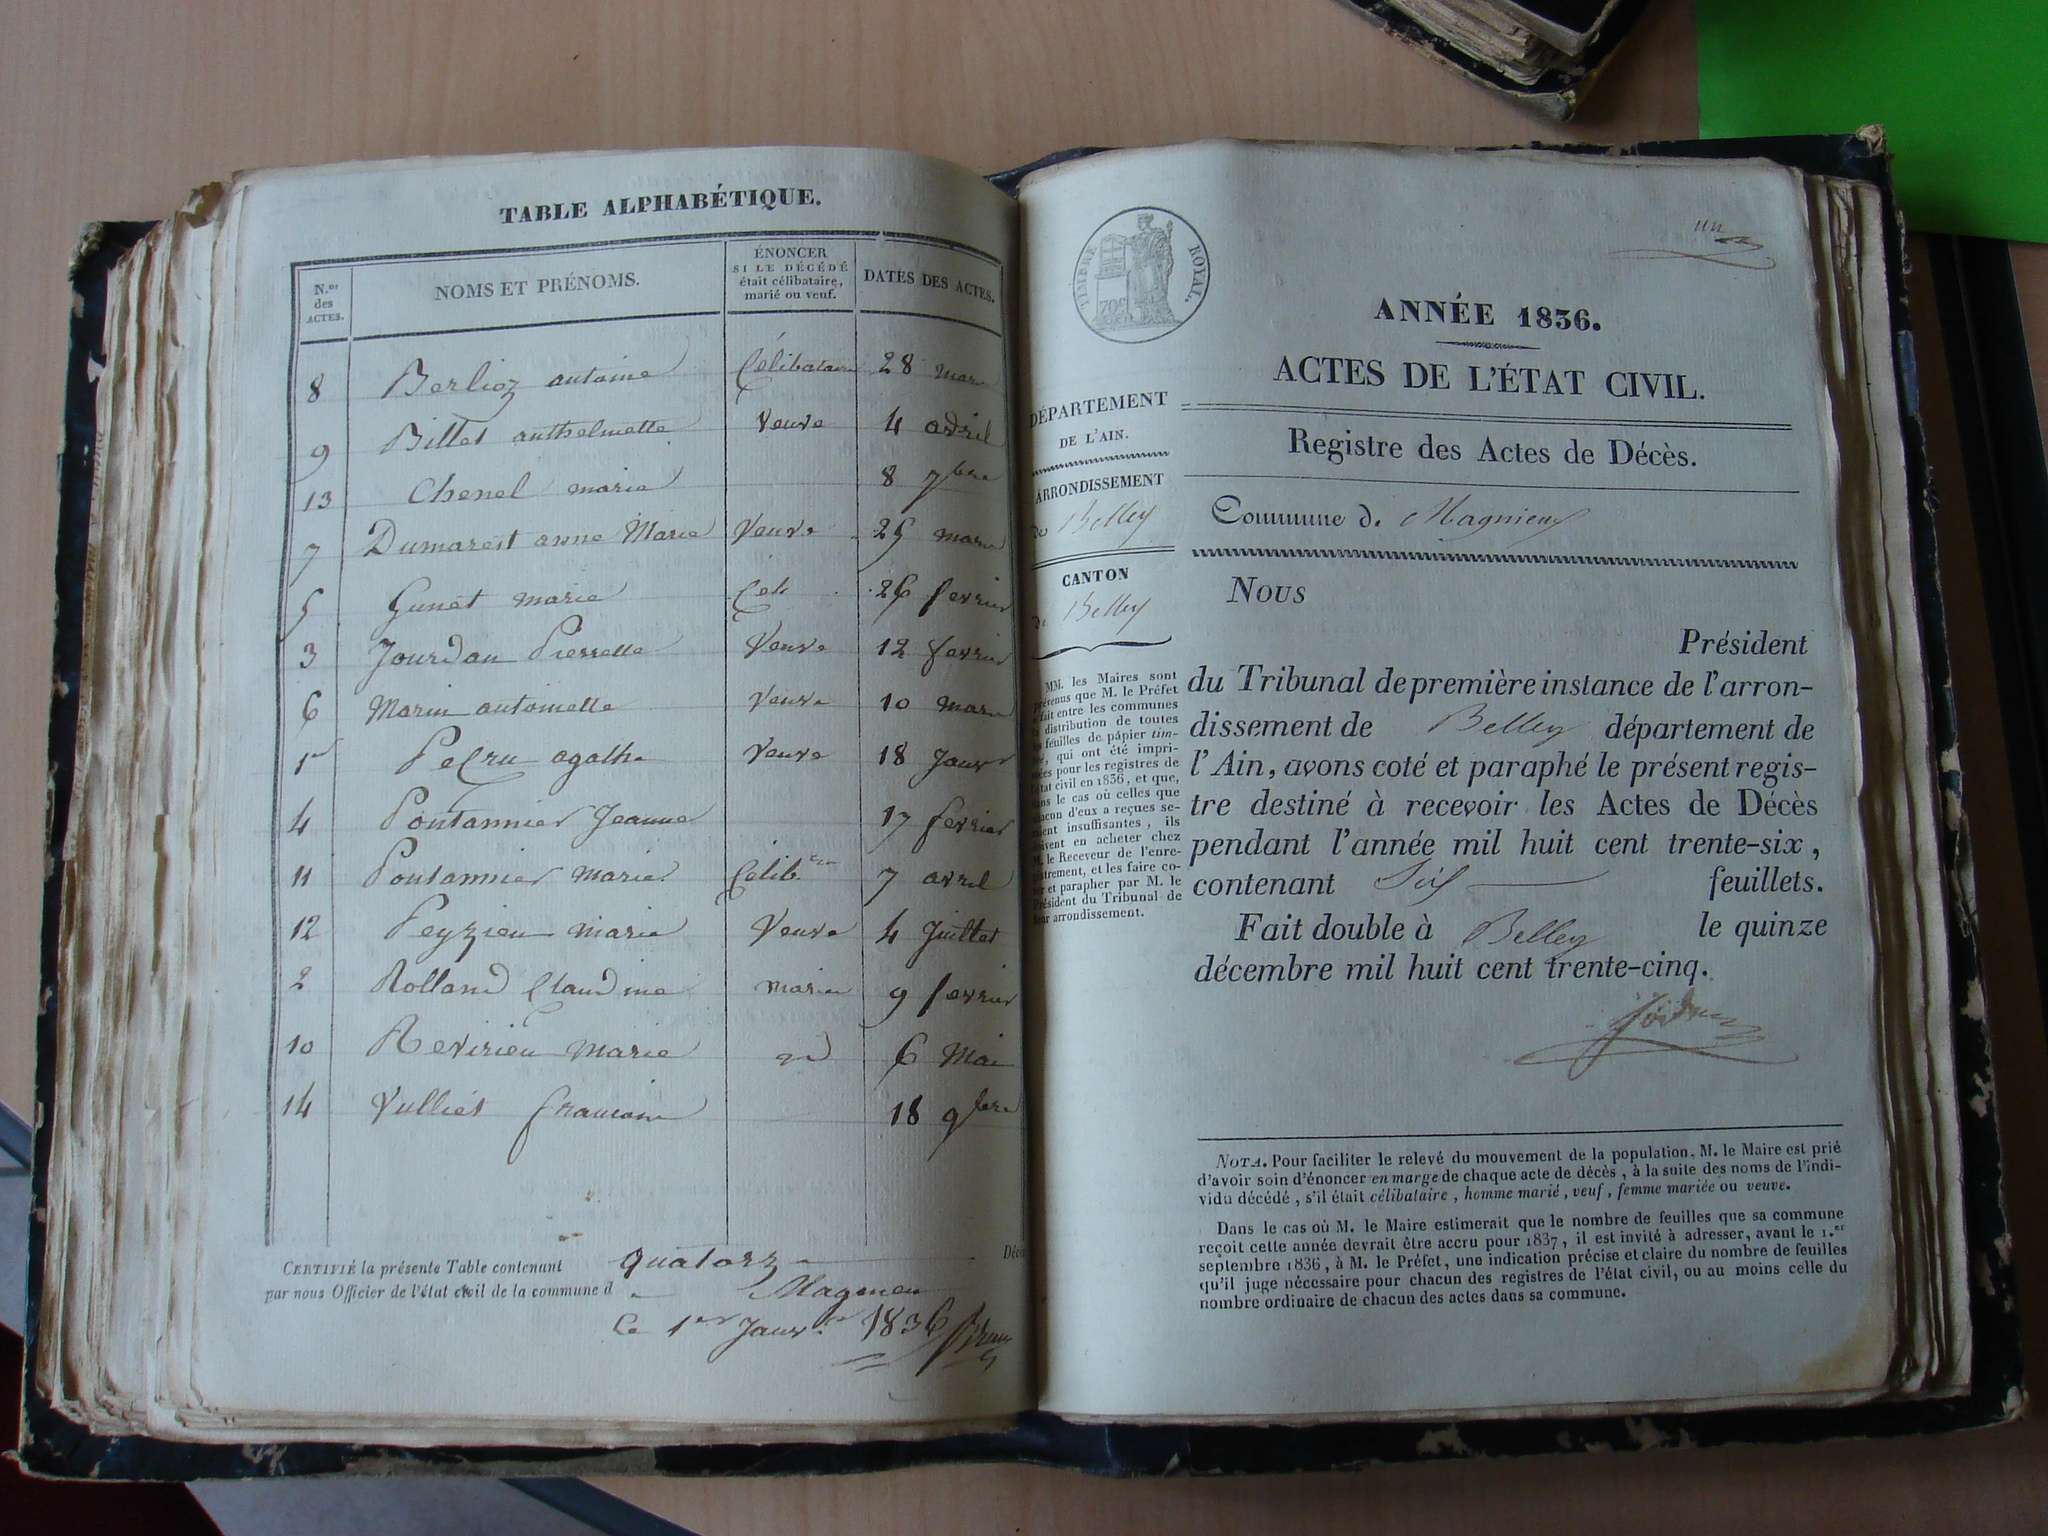 TABLE ALPHABÉTIQUE.
N.os des ACTES.
NOMS ET PRÉNOMS.
ÉNONCER SI LE DÉCÉDÉ était célibataire, marié ou veuf.
DATES DES ACTES.
8 Berlioz antoine Célibataire 28 mars
9 Billet anthelmette Veuve 4 avril
13 Chenel marie 8 7bre
7 Dumarest anne Marie Veuve 25 mars
5 Gunet marie Cel. 26 fevrier
3 Jourdan Pierrette Veuve 12 fevrier
6 Marin antoinette Veuve 10 mars
1er agathe Veuve 18 Janvr
4 Pontannier Jeanne 17 fevrier
11 Pontannier marie Célib. 7 avril
12 Peyzieu marie Veuve 4 Juillet
2 Rolland Claudine mariée 9 fevrier
10 Revirieu marie id 6 Mai
14 Vulliet 18 9bre
CERTIFIÉ la présente Table contenant quatorze Décès
par nous Officier de l'état civil de la commune d Magnieu
Le 1er Janv. 1836
TIMBRE ROYAL.
un
ANNÉE 1836.
ACTES DE L'ÉTAT CIVIL.
Registre des Actes de Décès.
Commune de Magnieu
DÉPARTEMENT
DE L'AIN.
ARRONDISSEMENT
de Belley
CANTON
de Belley
MM. les Maires sont
prévenus que M. le Préfet
a fait entre les communes
la distribution de toutes
les feuilles de papier tim-
bré, qui ont été impri-
mées pour les registres de
l'état civil en 1836, et que,
dans le cas où celles que
chacun d'eux a reçues se-
raient insuffisantes, ils
doivent en acheter chez
M. le Receveur de l'enre-
gistrement, et les faire co-
ter et parapher par M. le
Président du Tribunal de
leur arrondissement.
NOUS
Président
du Tribunal de première instance de l'arron-
dissement de Belley département de
l'Ain, avons coté et paraphé le présent regis-
tre destiné à recevoir les Actes de Décès
pendant l'année mil huit cent trente-six,
contenant Six feuillets.
Fait double à Belley le quinze
décembre mil huit cent trente-cinq.
NOTA. Pour faciliter le relevé du mouvement de la population, M. le Maire est prié
d'avoir soin d'énoncer en marge de chaque acte de décès, à la suite des noms de l'indi-
vidu décédé, s'il était célibataire, homme marié, veuf, femme mariée ou veuve.
Dans le cas où M. le Maire estimerait que le nombre de feuilles que sa commune
reçoit cette année devrait être accru pour 1837, il est invité à adresser, avant le 1.er
septembre 1836, à M. le Préfet, une indication précise et claire du nombre de feuilles
qu'il juge nécessaire pour chacun des registres de l'état civil, ou au moins celle du
nombre ordinaire de chacun des actes dans sa commune.